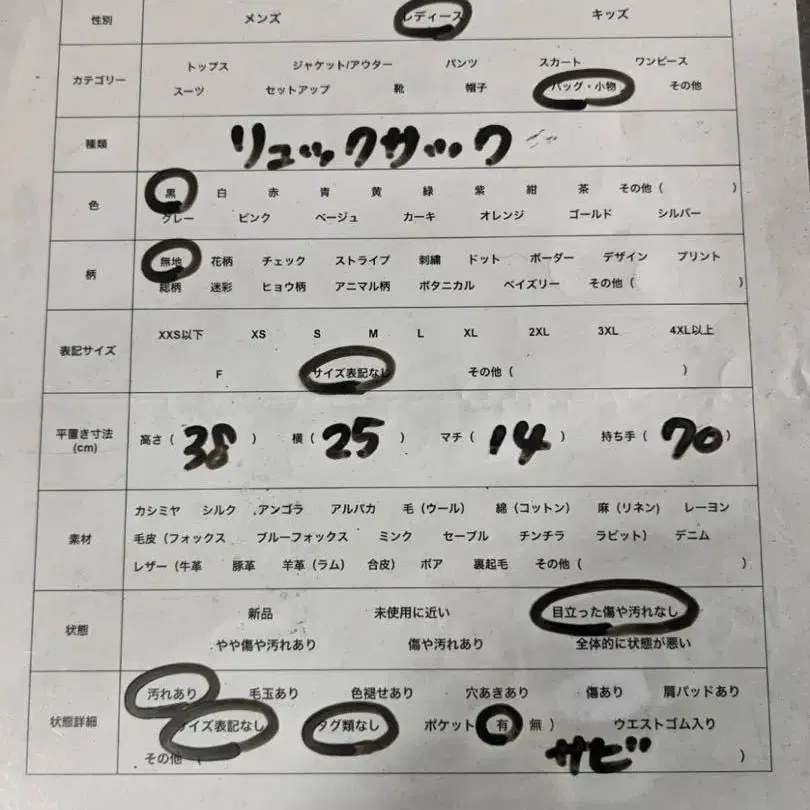 性別 メンズ レディース キッズ
カテゴリー トップス ジャケット/アウター パンツ スカート ワンピース
スーツ セットアップ 靴 帽子 バッグ・小物 その他
種類 リュックサック
色 黒 白 赤 青 黄 緑 紫 紺 茶 その他（ ）
グレー ピンク ベージュ カーキ オレンジ ゴールド シルバー
柄 無地 花柄 チェック ストライプ 刺繍 ドット ボーダー デザイン プリント
総柄 迷彩 ヒョウ柄 アニマル柄 ボタニカル ペイズリー その他（ ）
表記サイズ XXS以下 XS S M L XL 2XL 3XL 4XL以上
F サイズ表記なし その他（ ）
平置き寸法(cm) 高さ（38） 横（25） マチ（14） 持ち手（70）
素材 カシミヤ シルク アンゴラ アルパカ 毛（ウール） 綿（コットン） 麻（リネン） レーヨン
毛皮（フォックス ブルーフォックス ミンク セーブル チンチラ ラビット） デニム
レザー（牛革 豚革 羊革（ラム） 合皮） ボア 裏起毛 その他（ ）
状態 新品 未使用に近い 目立った傷や汚れなし
やや傷や汚れあり 傷や汚れあり 全体的に状態が悪い
状態詳細 汚れあり 毛玉あり 色褪せあり 穴あきあり 傷あり 肩パッドあり
サイズ表記なし タグ類なし ポケット（有 無） ウエストゴム入り
その他（ サビ ）